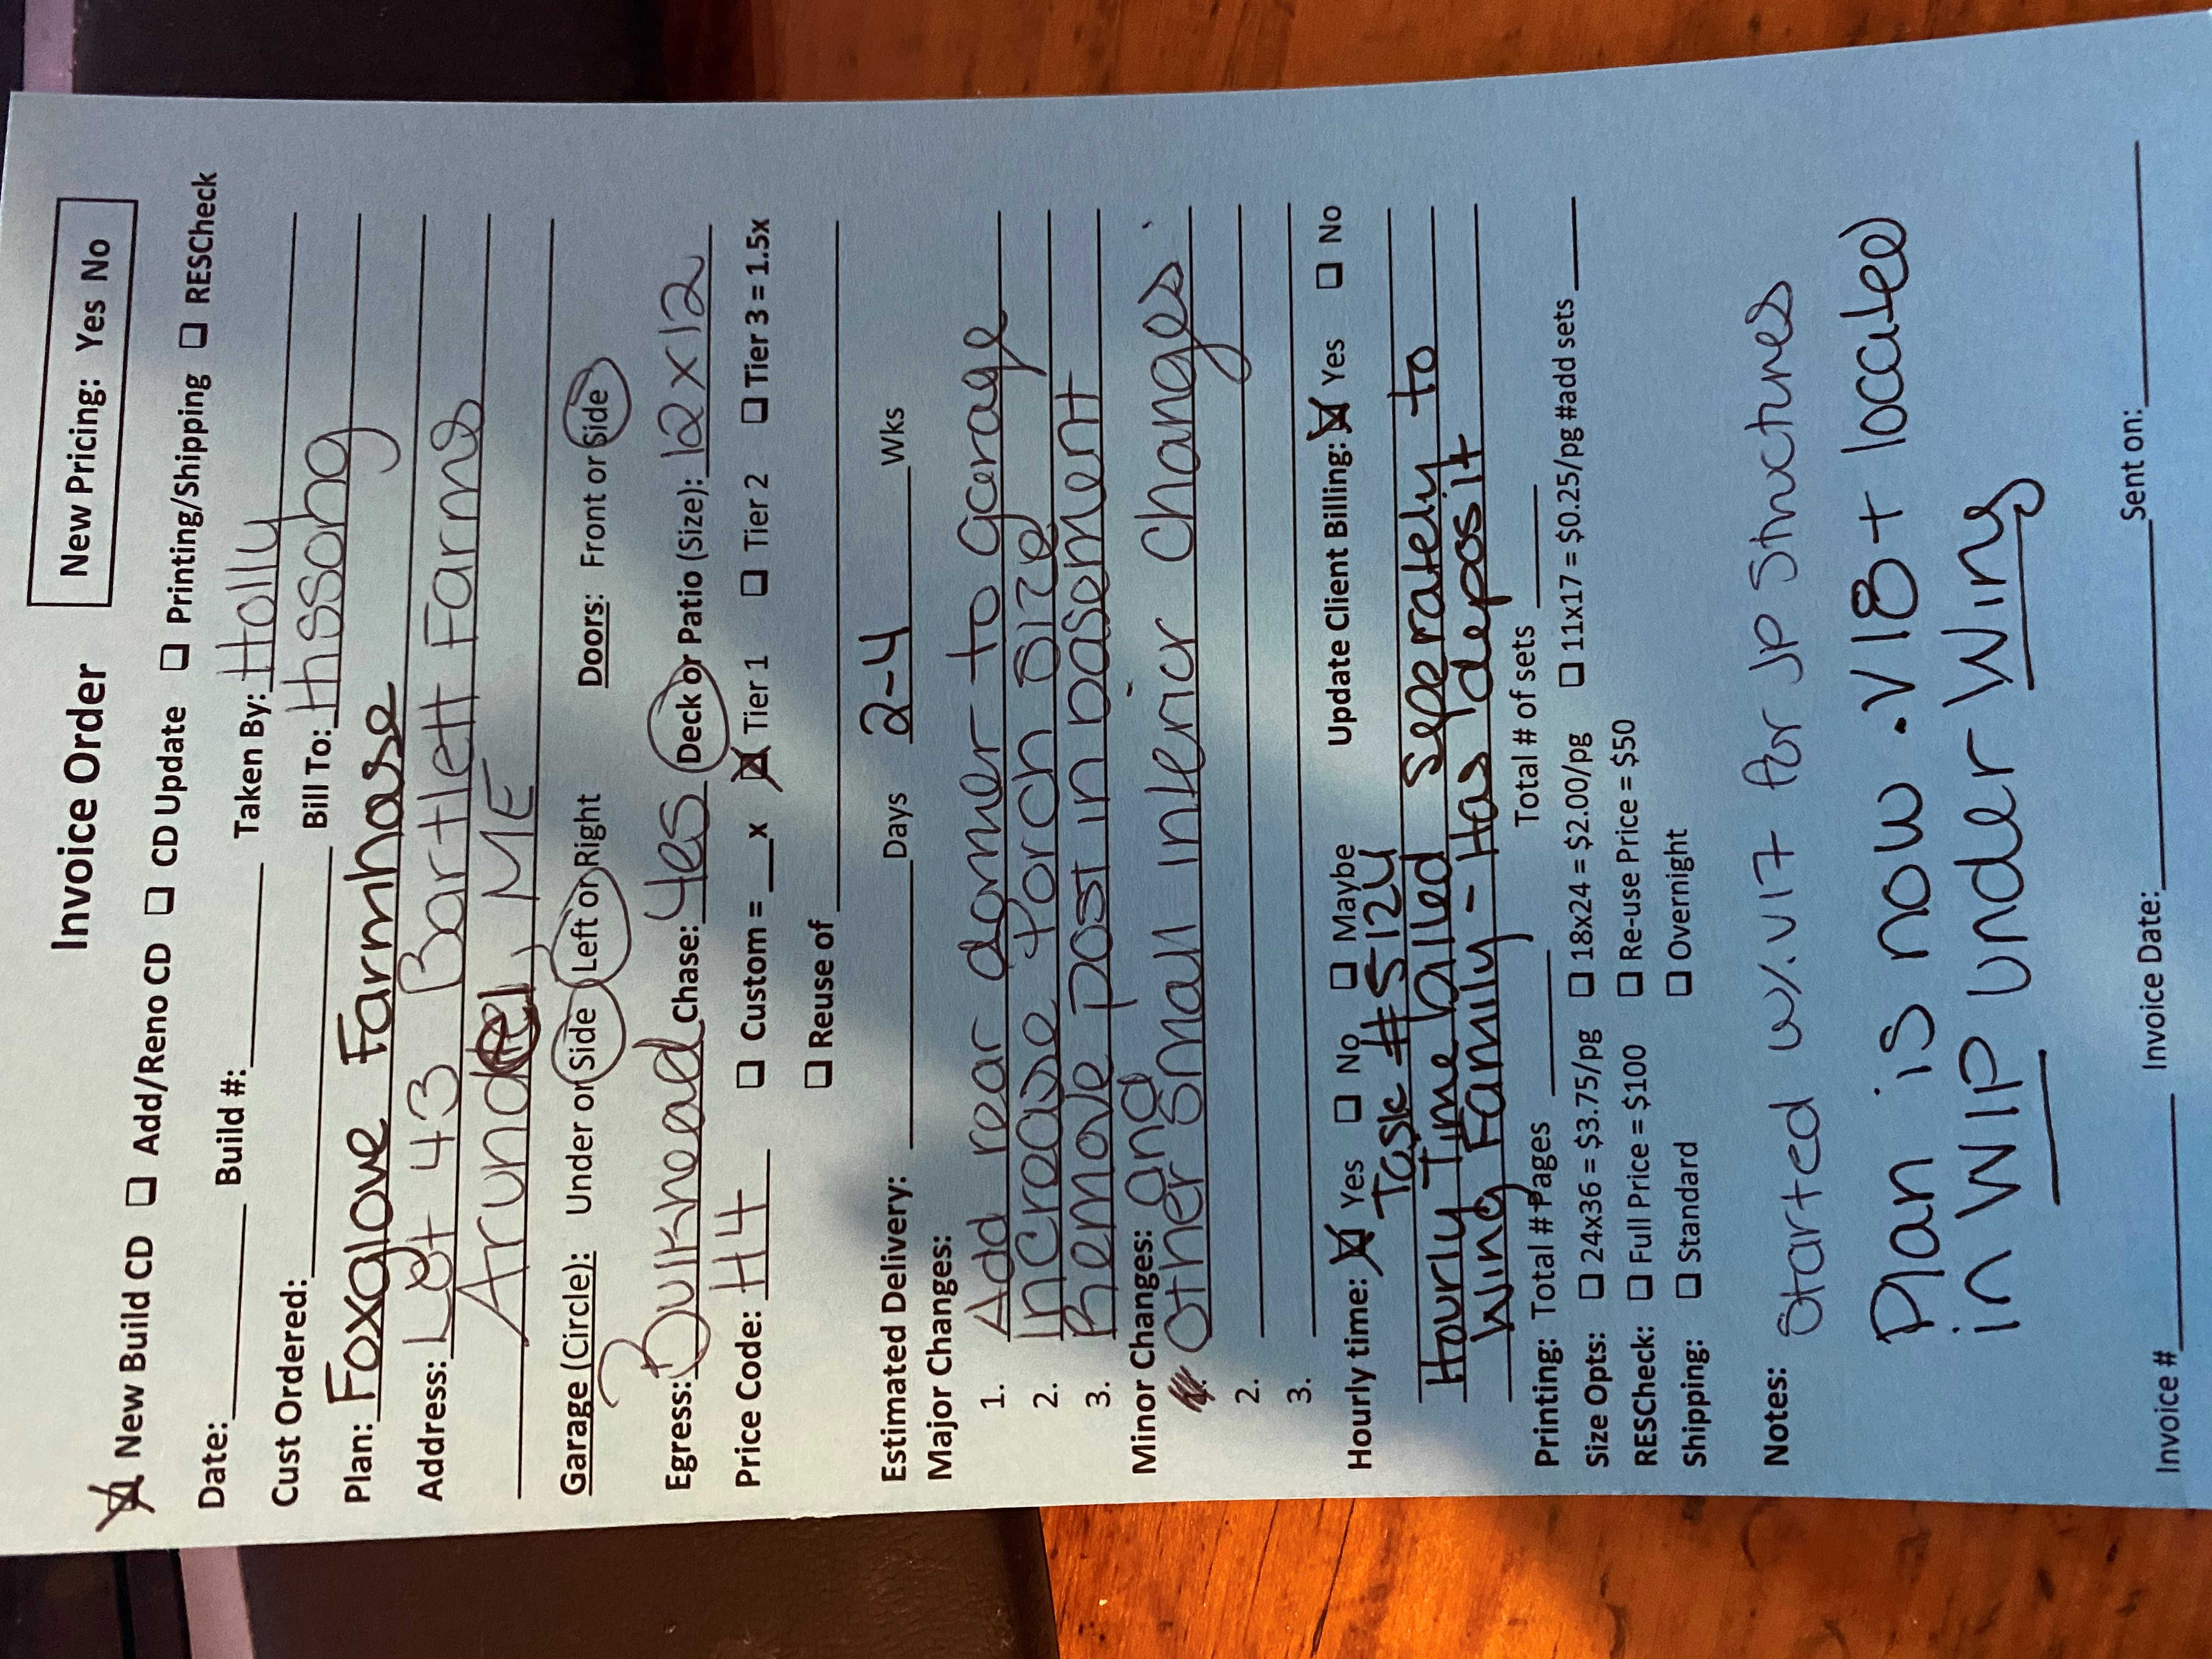 Invoice Order
New Pricing: Yes No
☒ New Build CD ☐ Add/Reno CD ☐ CD Update ☐ Printing/Shipping ☐ RESCheck
Date: ________ Build #: ________ Taken By: Holly
Cust Ordered: ________ Bill To: Hissong
Plan: Foxglove Farmhase
Address: Lot 43 Bartlett Farms
Arundel, ME
Garage (Circle): Under or Side Left or Right Doors: Front or Side
Egress: Bulkhead Chase: Yes Deck or Patio (Size): 12 x 12
Price Code: H4 ☐ Custom = ___x ☒ Tier 1 ☐ Tier 2 ☐ Tier 3 = 1.5x
☐ Reuse of ________
Estimated Delivery: ________ Days 2-4 Wks
Major Changes:
1. Add rear dormer to garage
2. Increase Porch size
3. Remove post in basement
Minor Changes: and
other small interior changes.
2.
3.
Hourly time: ☒ Yes ☐ No ☐ Maybe Update Client Billing: ☒ Yes ☐ No
Task # 5124
Hourly Time billed seperately to
Wing Family - Has deposit
Printing: Total # Pages ________ Total # of sets ________
Size Opts: ☐ 24x36 = $3.75/pg ☐ 18x24 = $2.00/pg ☐ 11x17 = $0.25/pg #add sets ____
RESCheck: ☐ Full Price = $100 ☐ Re-use Price = $50
Shipping: ☐ Standard ☐ Overnight
Notes: Started w/.V17 for JP Structures
Plan is now .V18 + located
in WIP under Wing
Invoice # ________ Invoice Date: ________ Sent on: ________